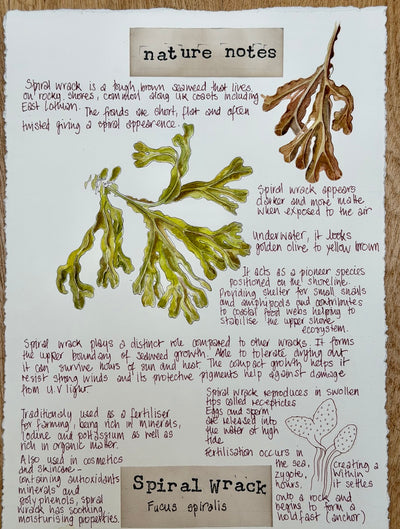 nature notes
Spiral wrack is a tough, brown seaweed that lives
on rocky shores, common along UK coasts including
East Lothian. The fronds are short, flat and often
twisted giving a spiral appearence.
Spiral wrack appears
darker and more matte
when exposed to the air
Underwater, it looks
golden olive to yellow brown
It acts as a pioneer species
positioned on the shoreline.
Providing shelter for small snails
and amphipods and contributes
to coastal food webs helping to
stabilise the upper shore
ecosystem.
Spiral wrack plays a distinct role compared to other wracks. It forms
the upper boundary of seaweed growth. Able to tolerate drying out
it can survive hours of sun and heat. The compact growth helps it
resist strong winds and its protective pigments help against damage
from U.V light.
Spiral wrack reproduces in swollen
tips called receptacles
Eggs and sperm
are released into
the water at high
tide.
Fertilisation occurs in
the sea, creating a
zygote, within
hours, it settles
onto a rock and
begins to form a
holdfast (anchor)
Traditionally used as a fertiliser
for farming, being rich in minerals,
Iodine and potassium as well as
rich in organic matter.
Also used in cosmetics
and skincare-
containing antioxidants
minerals and
polyphenols, spiral
wrack has soothing,
moisturising properties.
Spiral Wrack
Fucus spiralis